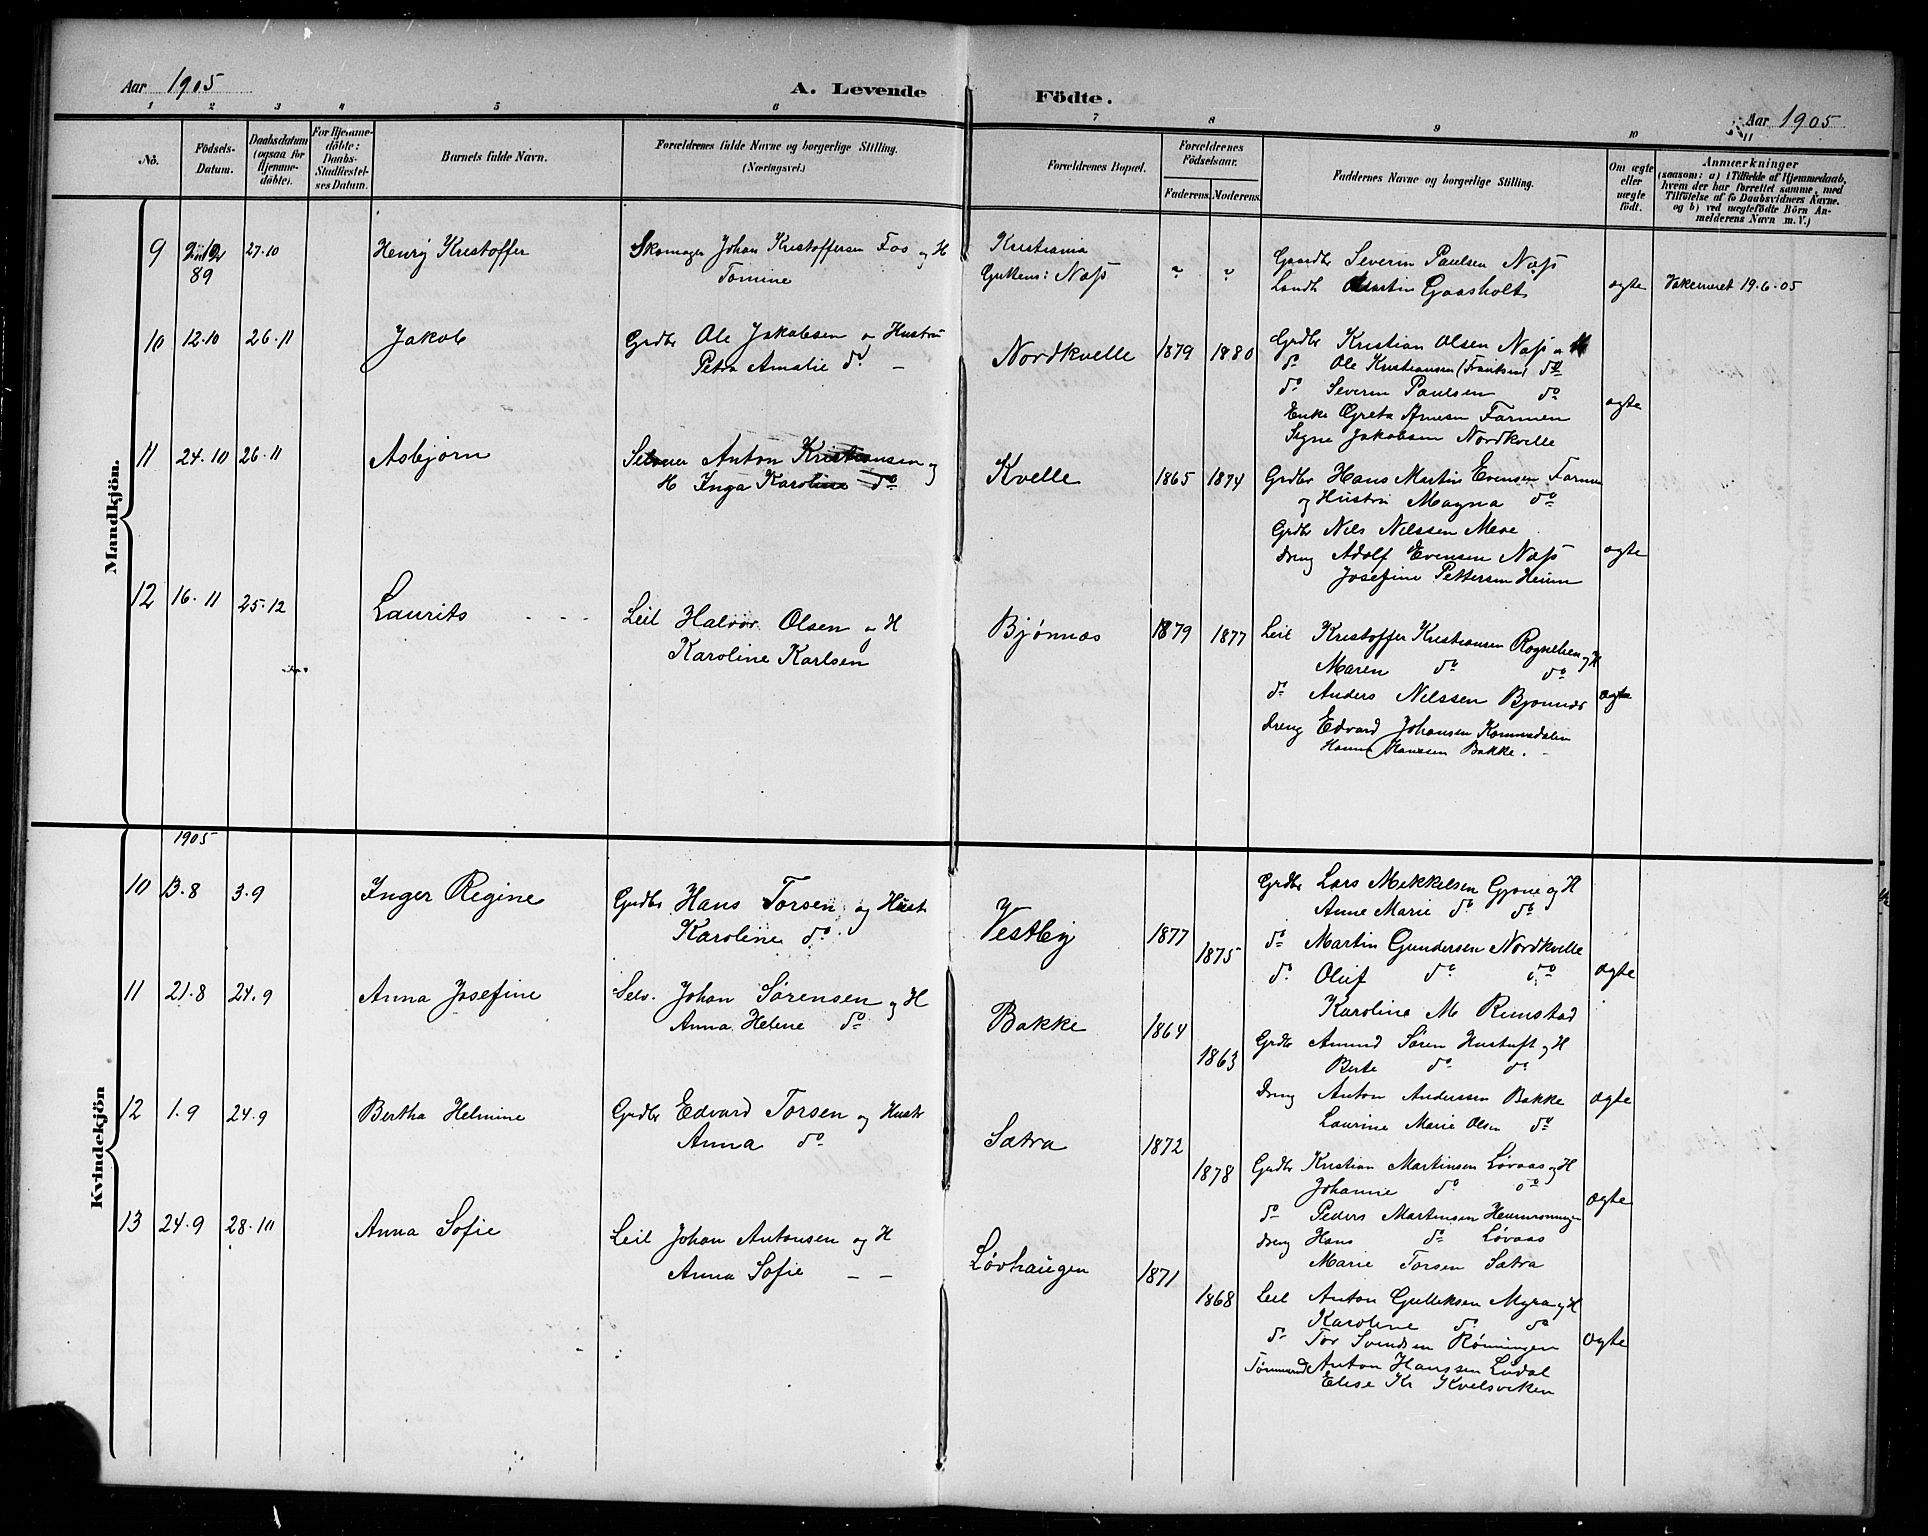 Aar 1905
A. Levende Födte.
Aar 1905
1 2 3 4 5 6 7 8 9 10 11
No.
Födsels-Datum.
Daabsdatum (ogsaa for Hjemme-döbte).
For Hjemme-döbte: Daabs-Stadfæstel-ses Datum.
Barnets fulde Navn.
Forældrenes fulde Navne og borgerlige Stilling. (Næringsvei.)
Forældrenes Bopæl.
Forældrenes Födselsaar.
Faderens. Moderens.
Faddernes Navne og borgerlige Stilling.
Om ægte eller uægte födt.
Anmærkninger
(saasom: a) i Tilfælde af Hjemmedaab,
hvem der har forrettet samme, med
Tilföielse af to Daabsvidners Navne.
og b) ved uægtefödte Börn An-
melderens Navn m. V.)
Mandkjön.
9 89 27.10 Henrij Kristoffer
Skomager Johan Kristoffersen Fos og H
Tomine
Kristiania
Guttens: Næss
Gaardbr Severin Paulsen Næss
Landh Martin Gaasholt
ægte
Vakcineret 19.6.05
10 12.10 26.11 Jakob
Grdbr Ole Jakobsen og Hustru
Petra Amalie do
Nordkvelle 1879 1880
Grdbr Kristian Olsen Næss og H
do Ole Kristiansen (Frantsen) do
do Severin Paulsen do
Enke Greta Arnesen Farmen
Signe Jakobsen Nordkvelle
ægte
11 24.10 26.11 Asbjørn
Anton Kristiansen og
H Inga Karoline do
Kvelle 1865 1874
Grdbr Hans Martin Evensen Farmen
og Hustru Magna do
Grdbr Nils Nilssen Moe
dreng Adolf Evensen Næss
Josefine Pettersen Heum
ægte
12 16.11 25.12 Laurits
Leil Halvor Olsen og H
Karoline Karlsen
Bjønnæs 1879 1877
Leil Kristoffer Kristiansen Rognelien og H
Maren do do
do Anders Nilssen Bjønnes
dreng Edvard Johansen
Hanna Hanssen Bakke.
ægte
Kvindekjön
1905
10 13.8 3.9 Inger Regine
Grdbr Hans Torsen og Hust
Karoline do
Vestby 1877 1875
Grdbr Lars Mekkelsen Gjone og H
Anne Marie do do
do Martin Gundersen Nordkvelle
do Oluf do do
Karoline M Rimstad
ægte
11 21.8 24.9 Anna Josefine
Selv. Johan Sørensen og H
Anna Helene do
Bakke 1864 1863
Grdbr Amund Søren Hustuft og H
Berte do do
Dreng Anton Anderssen Bakke
Laurine Marie Olsen do
ægte
12 1.9 24.9 Bertha Helmine
Grdbr Edvard Torsen og Hustr
Anna do
Sætra 1872 1878
Grdbr Kristian Martinsen Løvaas og H
Johanne do do
do Peders Martinsen
dreng Hans do Løvaas
Marie Torsen Sætra
ægte
13 24.9 28.10 Anna Sofie
Leil Johan Antonsen og H
Anna Sofie
Løvhaugen 1871 1868
Leil Anton Gulleksen Myra og H
Karoline do do
do Tor Svendsen Rønningen
Tømmermd Anton Hanssen Ludal
Elise Kr Kvelsviken
ægte